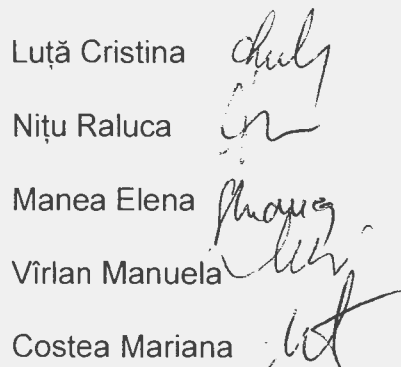 Luță Cristina
Nițu Raluca
Manea Elena
Vîrlan Manuela
Costea Mariana